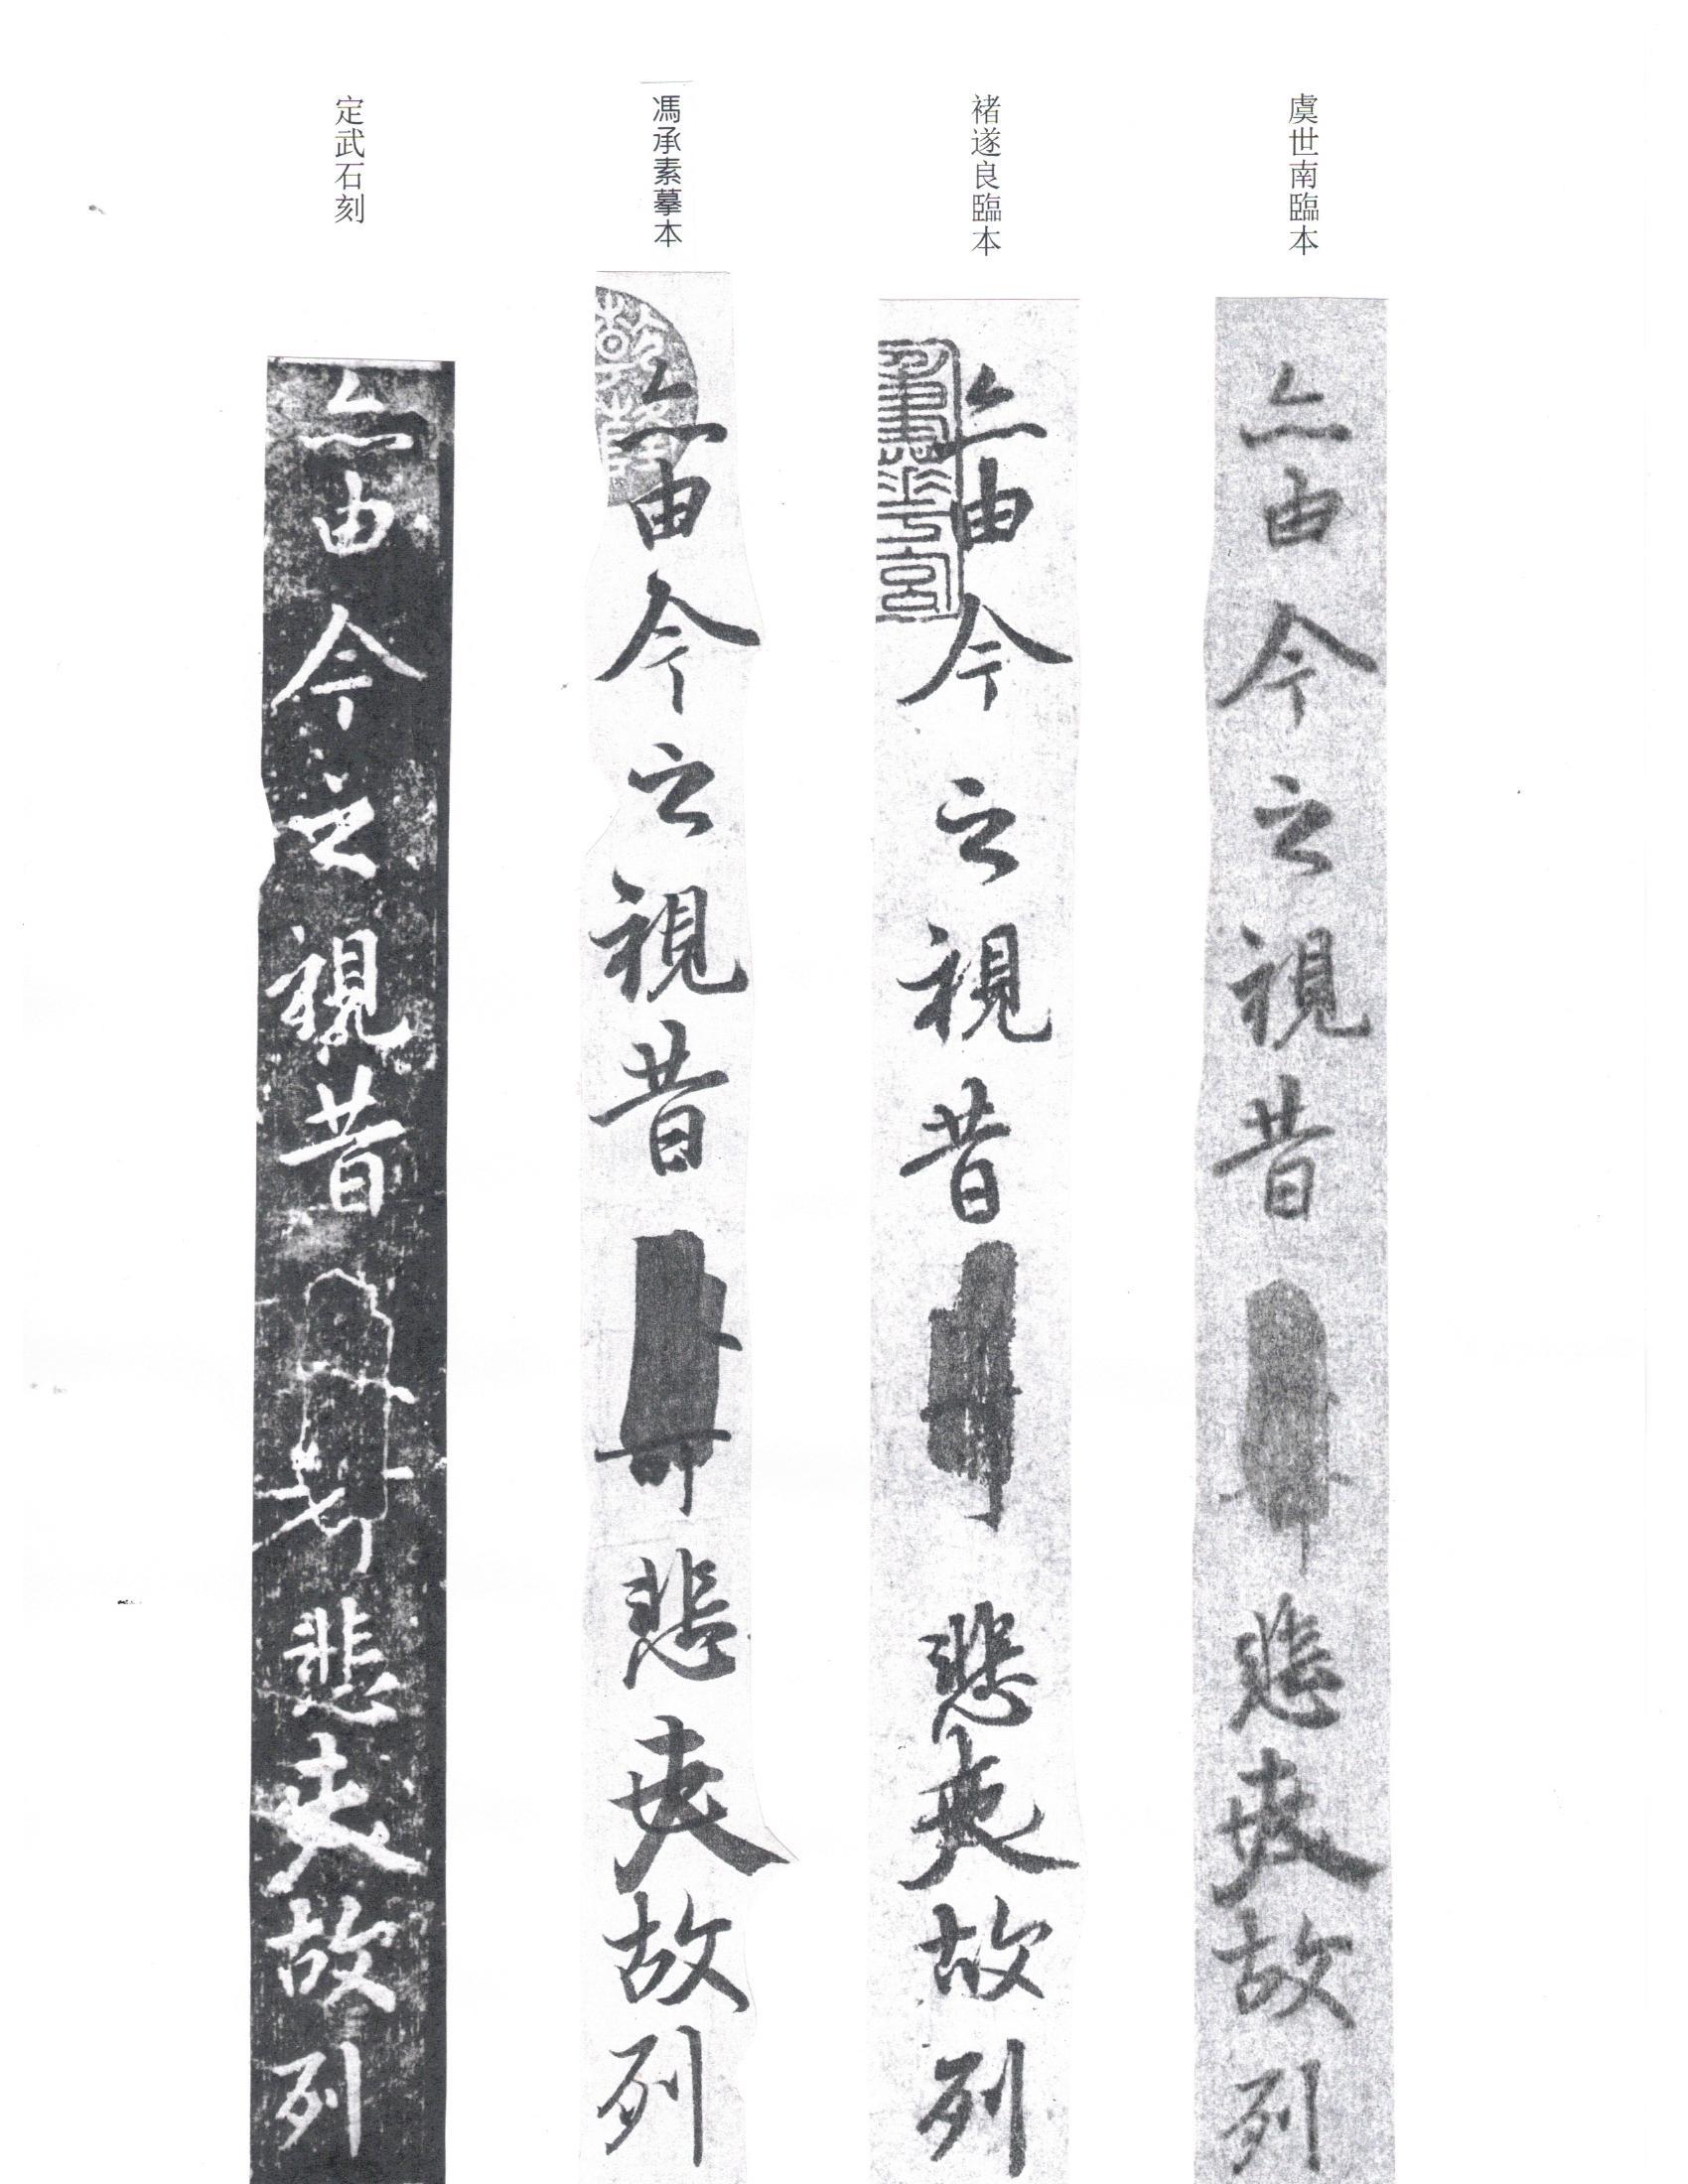 虞世南臨本
亦由今之視昔悲夫故列
褚遂良臨本
亦由今之視昔悲夫故列
馮承素摹本
亦由今之視昔悲夫故列
定武石刻
亦由今之視昔悲夫故列